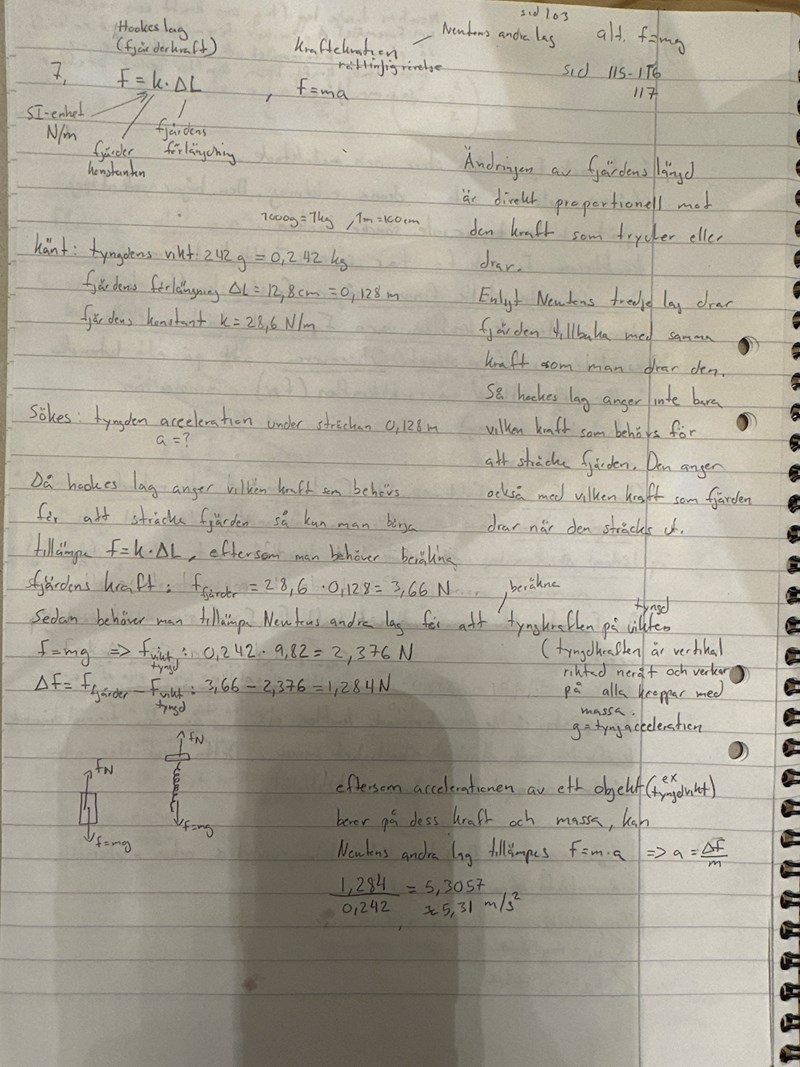 sid 103
Hookes lag
(fjärderkraft)
kraftekvation
rätlinjig rörelse
Newtons andra lag
alt. f=mg
7, F = k · ΔL , F=ma
sid 115-116
117
SI-enhet
N/m
fjärder
konstanten
fjärdens
förlängning
Ändringen av fjärdens längd
är direkt proportionell mot
den kraft som trycker eller
drar.
1000g=1kg , 1m=100cm
känt: tyngdens vikt 242 g = 0,242 kg
fjärdens förlängning ΔL = 12,8 cm = 0,128 m
fjärdens konstant k = 28,6 N/m
Enlyt Newtons tredje lag drar
fjärden tillbaka med samma
kraft som man drar den.
Så hookes lag anger inte bara
vilken kraft som behövs för
att sträcka fjärden. Den anger
också med vilken kraft som fjärden
drar när den sträcks ut.
Sökes: tyngden acceleration under sträckan 0,128 m
a = ?
Då hookes lag anger vilken kraft som behövs
för att sträcka fjärden så kan man börja
tillämpa F = k · ΔL, eftersom man behöver beräkna
fjärdens kraft: f fjärder = 28,6 · 0,128 = 3,66 N
beräkna
Sedan behöver man tillämpa Newtons andra lag för att tyngkraften på vikten
tyngd
f = mg => F vikt: 0,242 · 9,82 = 2,376 N
tyngd
Δf = F fjärder − F vikt: 3,66 − 2,376 = 1,284 N
tyngd
(tyngdkraften är vertikal
riktad neråt och verkar
på alla kroppar med
massa.
g = tyngacceleration
fN
f=mg
fN
f=mg
eftersom accelerationen av ett objekt (ex tyngdvikt)
beror på dess kraft och massa, kan
Newtons andra lag tillämpas F = m · a => a = Δf/m
1,284/0,242 = 5,3057
≈ 5,31 m/s²